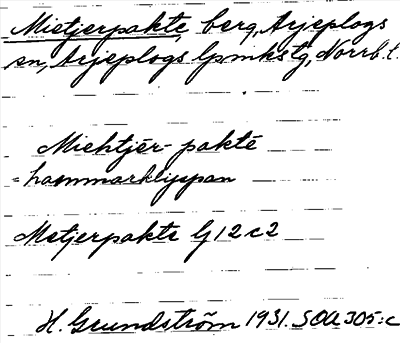 Mietjerpakte, berg, Arjeplogs
sn, Arjeplogs lpmkstg, Norrb.l.
Miehtjēr- pakte
Metjerpakte G 12 c 2
H. Grundström 1931. SOU 305:c